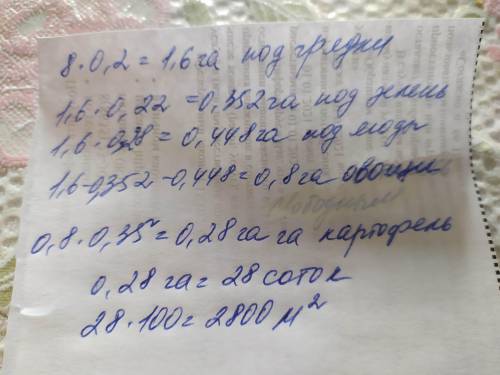 8·0,2=1,6га под грядки
1,6·0,22=0,352га под зелень
1,6·0,28=0,448га под ягоды
1,6-0,352-0,448=0,8га овощи
0,8·0,35=0,28га га картофель
0,28га=28соток
28·100=2800м²